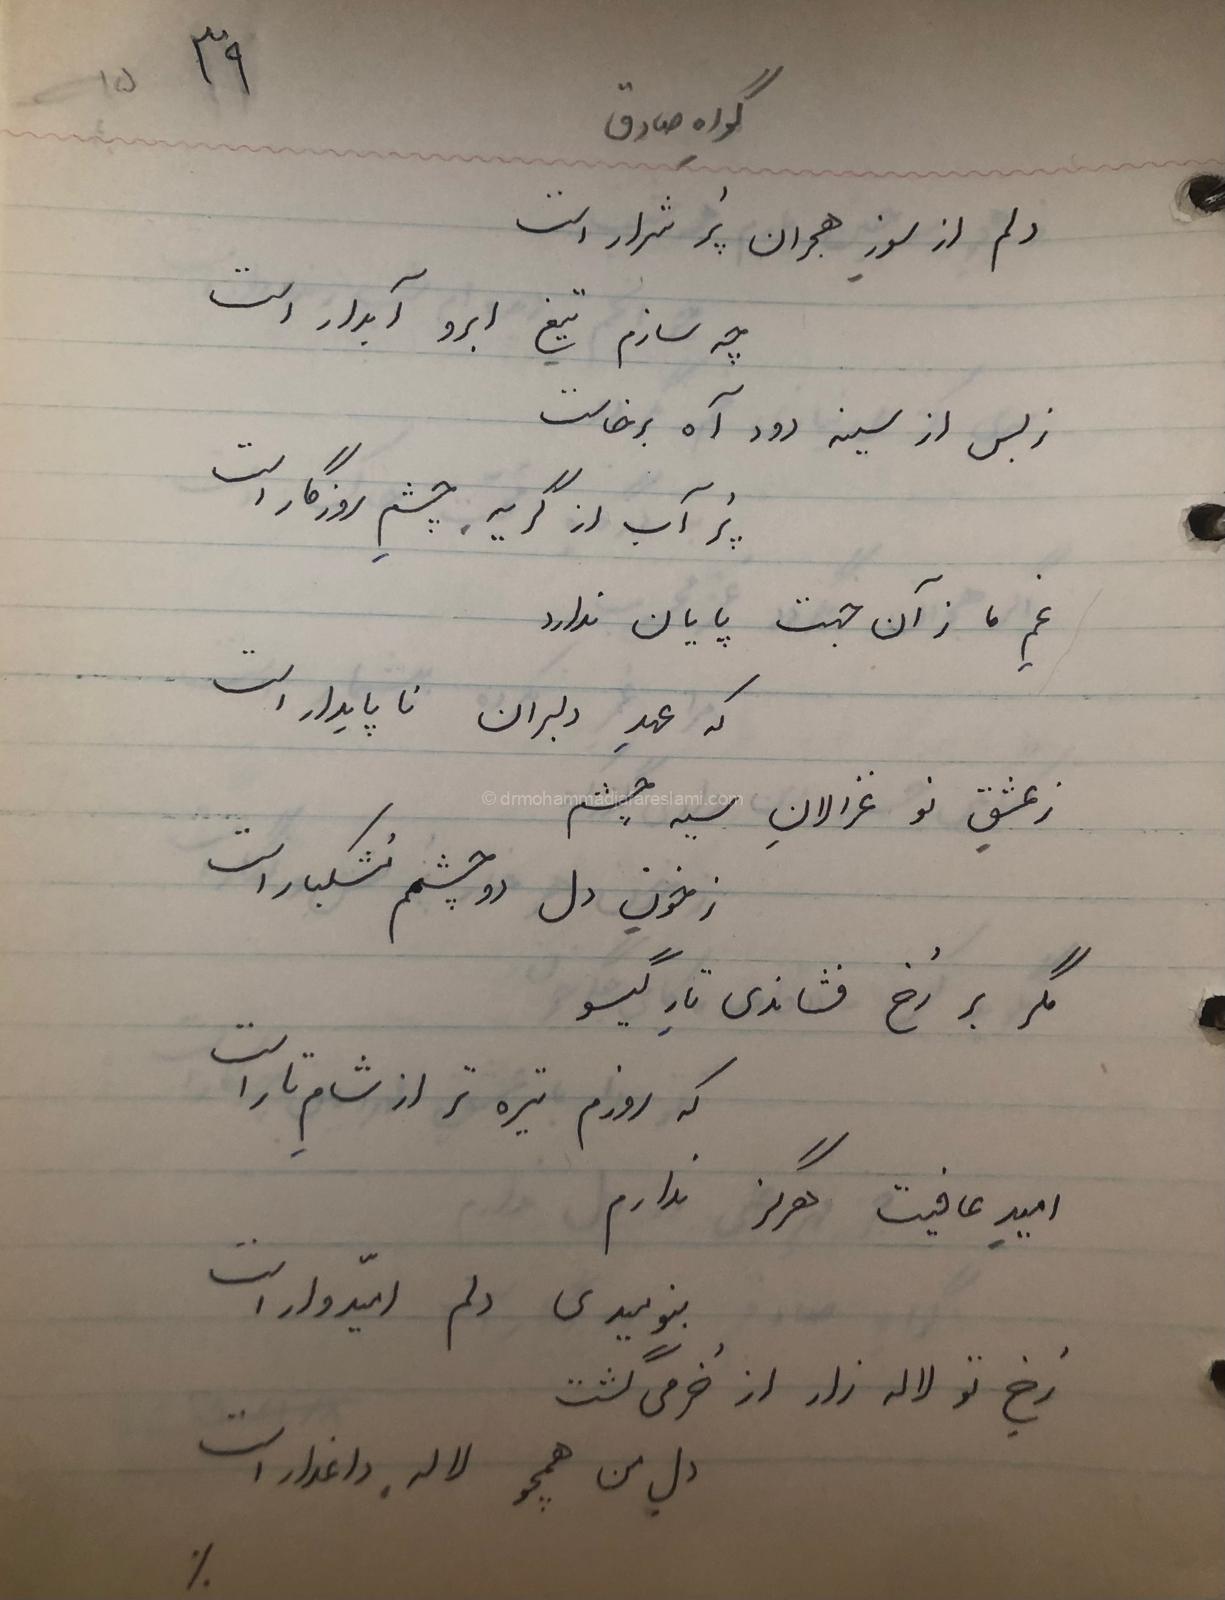 ۳۹
۱۵
گواهِ صادق
دلم از سوزِ هجران پُر شرار است
چه سازم تیغِ ابرو آبدار است
ز بس از سینه دود آه برخاست
پُر آب از گریه، چشمِ روزگار است
غمِ ما ز آن جهت پایان ندارد
که عهدِ دلبران ناپایدار است
ز عشقِ تو غزالانِ سیه چشم
© drmohammadjafareslami.com
ز خونِ دل دو چشمم مُشکبار است
مگر بر رُخ فشاندی تارِ گیسو
که روزم تیره تر از شامِ تار است
امیدِ عافیت هرگز ندارم
بنومیدی دلم امّیدوار است
رُخِ تو لاله زار از خُرمی گشت
دلِ من همچو لاله، داغدار است
٪